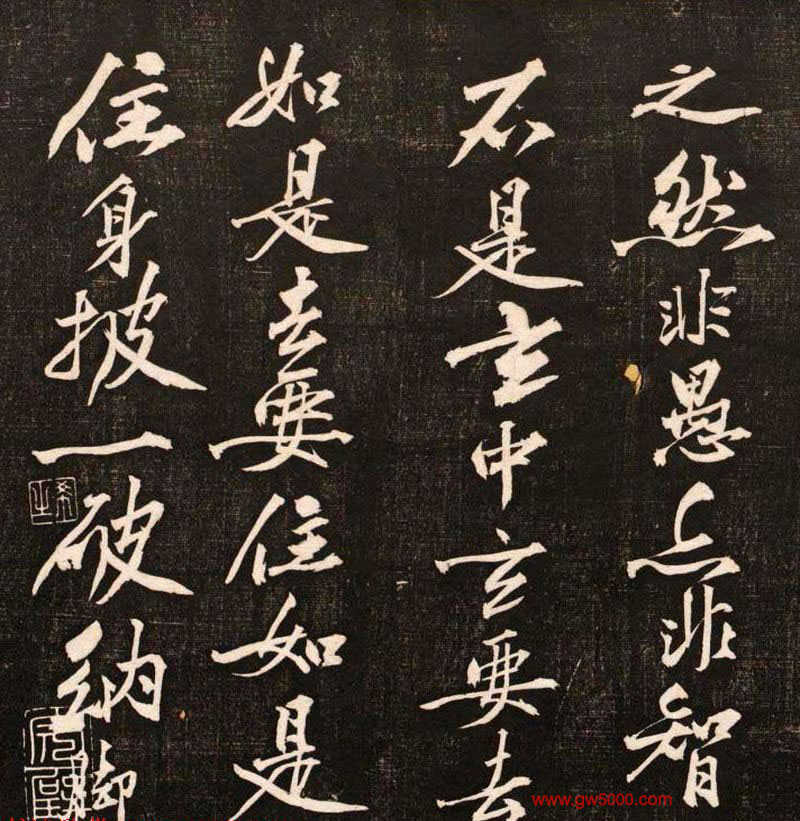 之然非愚亦非智
不是玄中玄要去
如是去要住如是
住身披一破衲脚
www.gw5000.com